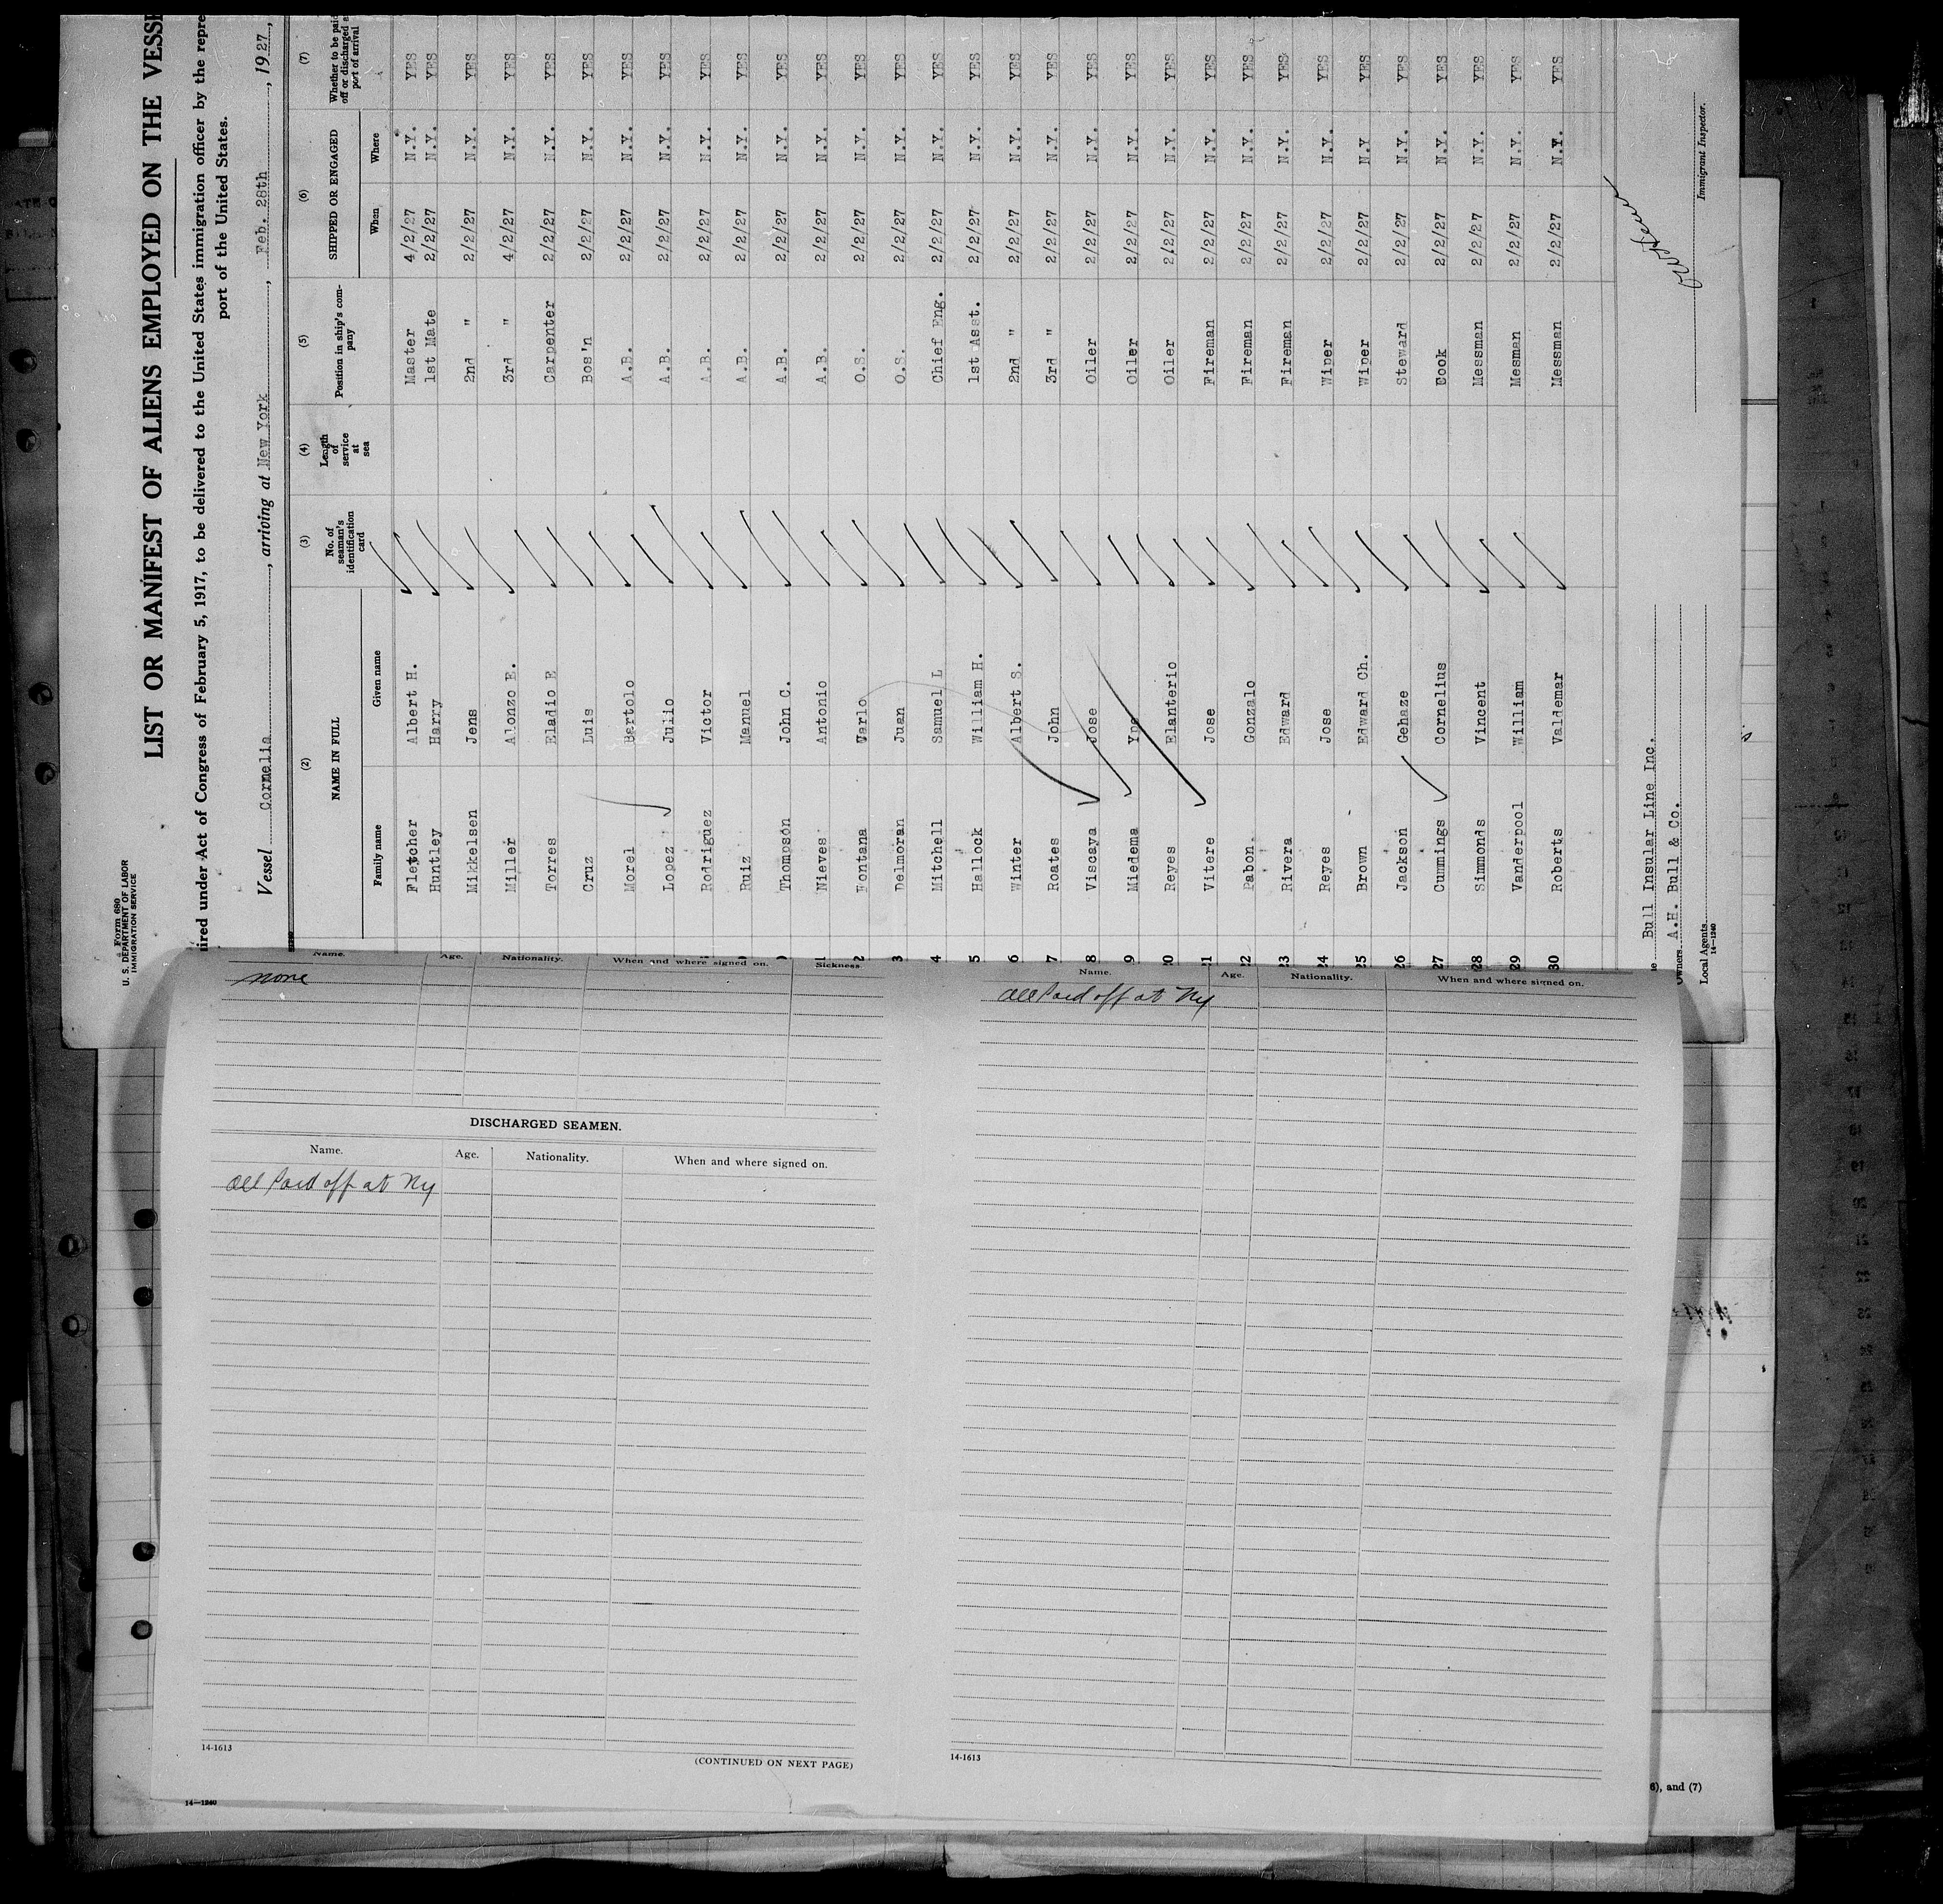 Form 680
U. S. DEPARTMENT OF LABOR
IMMIGRATION SERVICE
LIST OR MANIFEST OF ALIENS EMPLOYED ON THE VESSE
ired under Act of Congress of February 5, 1917, to be delivered to the United States immigration officer by the repre
port of the United States.
Vessel Cornelia, arriving at New York, Feb. 28th, 1927,
(2) (3) (4) (5) (6) (7)
NAME IN FULL No. of seaman's identification card Length of service at sea Position in ship's company SHIPPED OR ENGAGED Whether to be paid off or discharged a port of arrival
Family name Given name When Where
Fletcher Albert H. Master 4/2/27 N.Y. YES
Huntley Harry 1st Mate 2/2/27 N.Y. YES
Mikkelsen Jens 2nd " 2/2/27 N.Y. YES
Miller Alonzo E. 3rd " 4/2/27 N.Y. YES
Torres Eladio E Carpenter 2/2/27 N.Y. YES
Cruz Luis Bos'n 2/2/27 N.Y. YES
Morel Bartolo A.B. 2/2/27 N.Y. YES
Lopez Julio A.B. 2/2/27 N.Y. YES
Rodriguez Victor A.B. 2/2/27 N.Y. YES
0 Ruiz Manuel A.B. 2/2/27 N.Y. YES
Thompson John C. A.B. 2/2/27 N.Y. YES
1 Nieves Antonio A.B. 2/2/27 N.Y. YES
2 Fontana Carlo O.S. 2/2/27 N.Y. YES
3 Delmoran Juan O.S. 2/2/27 N.Y. YES
4 Mitchell Samuel L Chief Eng. 2/2/27 N.Y. YES
5 Hallock William H. 1st Asst. 2/2/27 N.Y. YES
6 Winter Albert S. 2nd " 2/2/27 N.Y. YES
7 Roates John 3rd " 2/2/27 N.Y. YES
8 Viscaya Jose Oiler 2/2/27 N.Y. YES
9 Miedema Ype Oiler 2/2/27 N.Y. YES
20 Reyes Elanterio Oiler 2/2/27 N.Y. YES
21 Vitere Jose Fireman 2/2/27 N.Y. YES
22 Pabon Gonzalo Fireman 2/2/27 N.Y. YES
23 Rivera Edward Fireman 2/2/27 N.Y. YES
24 Reyes Jose Wiper 2/2/27 N.Y. YES
25 Brown Edward Ch. Wiper 2/2/27 N.Y YES
26 Jackson Gehaze Steward 2/2/27 N.Y. YES
27 Cummings Cornelius Cook 2/2/27 N.Y. YES
28 Simmonds Vincent Messman 2/2/27 N.Y. YES
29 Vanderpool William Mesman 2/2/27 N.Y. YES
30 Roberts Valdemar Messman 2/2/27 N.Y. YES
Bull Insular Line Inc.
Owners A.H. Bull & Co.
Local Agents
14—1240
Immigrant Inspector.
Name. Age. Nationality. When and where signed on. Sickness
none
DISCHARGED SEAMEN.
Name. Age. Nationality. When and where signed on.
All Paid off at Ny
14-1613
(CONTINUED ON NEXT PAGE)
14—1240
Name. Age. Nationality. When and where signed on.
All Paid off at Ny
14-1613
6), and (7)